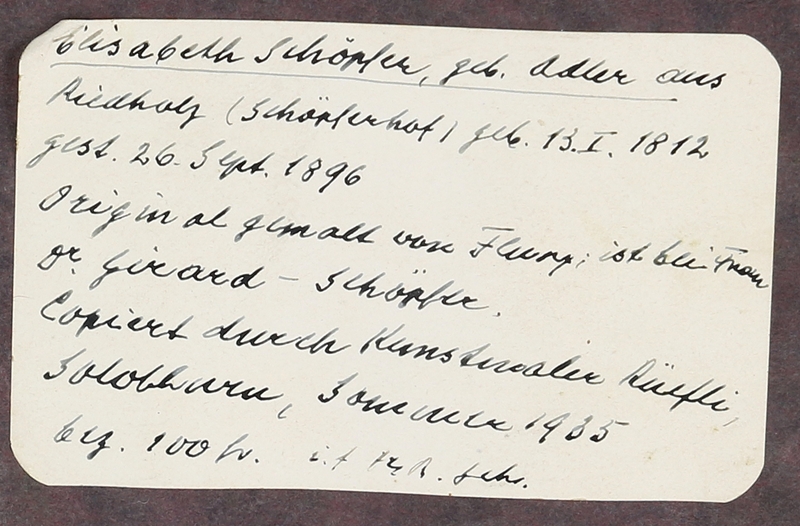 Elisabeth Schöpfer, geb. Adler aus
Riedholz (Schöpferhof) geb. 13.I. 1812
gest. 26. Sept. 1896
Original gemalt von Flury; ist bei Frau
Dr. Girard - Schöpfer.
Copiert durch Kunstmaler Rüefli,
Solothurn, Sommer 1935
bez. 100 fr.